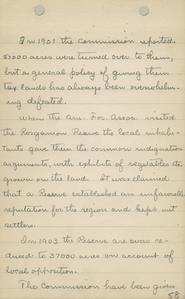 In 1901 the Commission reported
57000 acres were turned over to them,
but a general policy of giving them
tax lands has always been overwhelm-
ing defeated.
When the Am. For. Assoc. visited
the Roscommon Reserve the local inhabi-
tants gave them the common indignation
arguments, with exhibits of vegetables etc
grown on the land. It was claimed
that a Reserve established an unfavorable
reputation for the region and kept out
settlers.
In 1903 the Reserve area were re-
duced to 37000 acres on account of
local opposition.
The Commission have been given
58